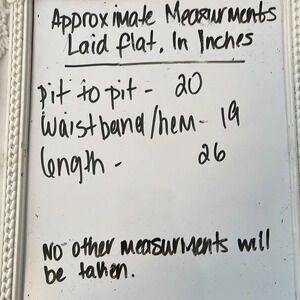 Approximate Measurments
Laid flat, In Inches
pit to pit - 20
waistband/hem - 19
length - 26
No other measurments will
be taken.